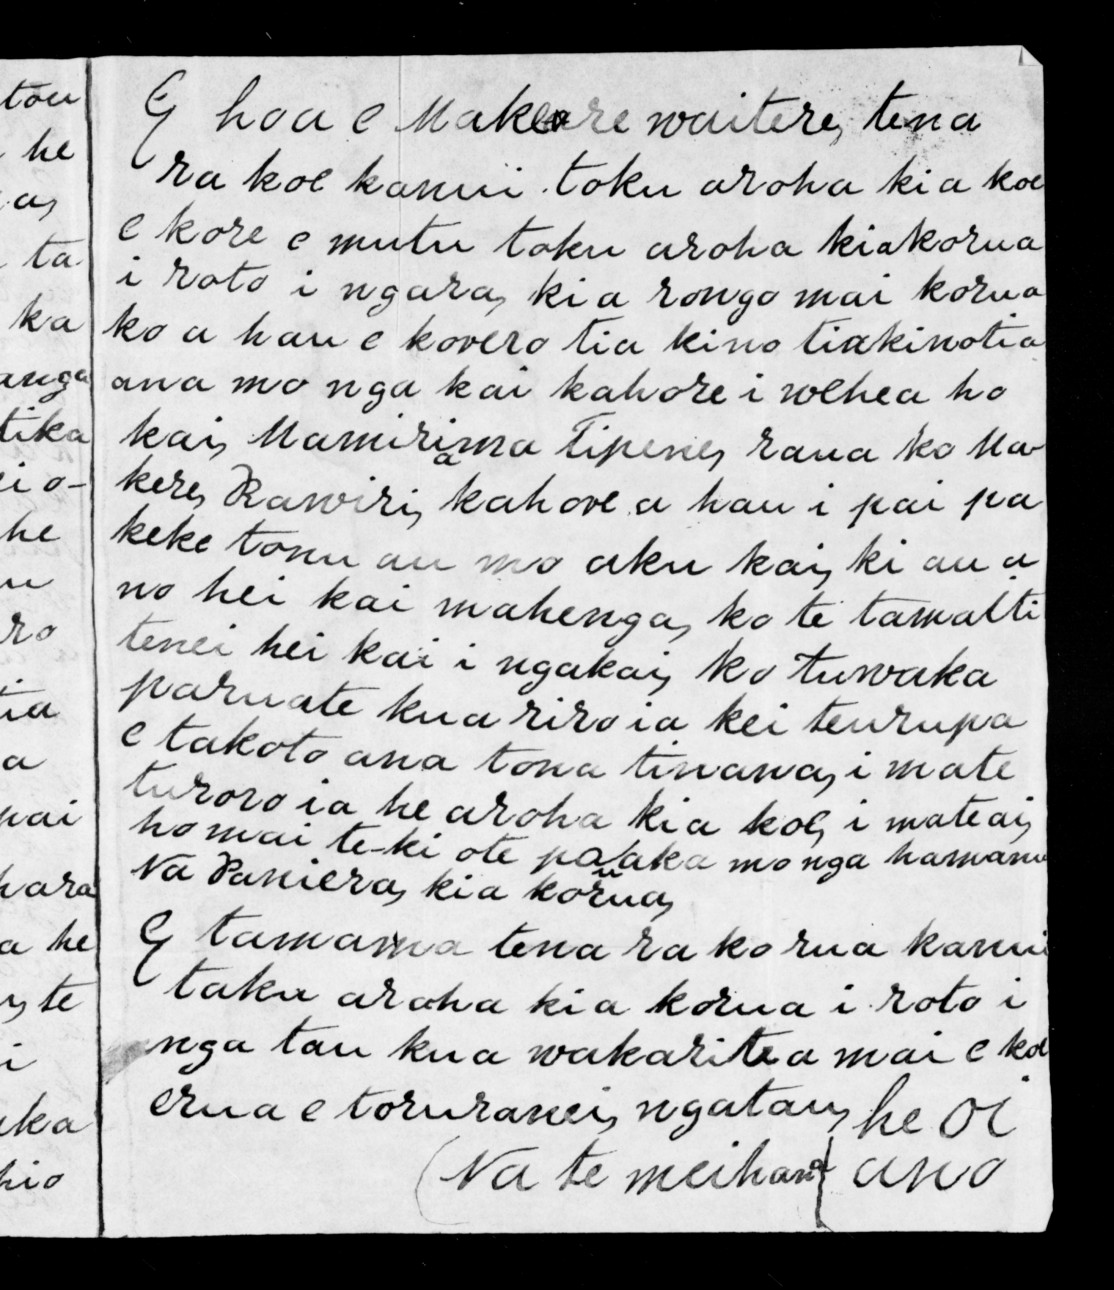 tou
he
a,
ta
ka
anga
tika
ei o-
he
u
ro
tia
a
pai
hara
a he
y te
i
uka
hio
E hoa e Makere waitere, tena
ra koe kanui toku aroha ki a koe
e kore e mutu toku aroha kiakorua
i roto i ngara, ki a rongo mai korua
ko a hau e korero tia kino tiakinotia
ana mo nga kai kahore i wehea ho
kai, Mamirima a Tipene, raua ko Ma-
kere, Rawiri, kahore a hau i pai pa
keke tonu au mo aku kai, ki au a
no hei kai mahenga, ko te tamaiti
tenei hei kai i ngakai, ko tuwaka
paruate kua riro ia kei teurupa
e takoto ana tona tinana, i mate
turoro ia he aroha kia koe, i mateai,
homai te-ki ote pataka mo nga hamanu
Na Paniera, ki a korua,
E tamama tena ra ko rua kanui
taku aroha ki a korua i roto i
nga tau kua wakaritea mai e koe
erua e toruranei, ngatau, he Oi
(Na te meihana) ano